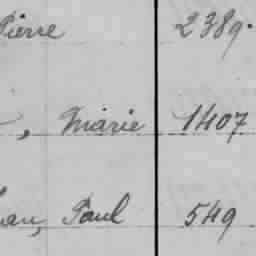 Pierre 2389.
, Marie 1407
Paul 549